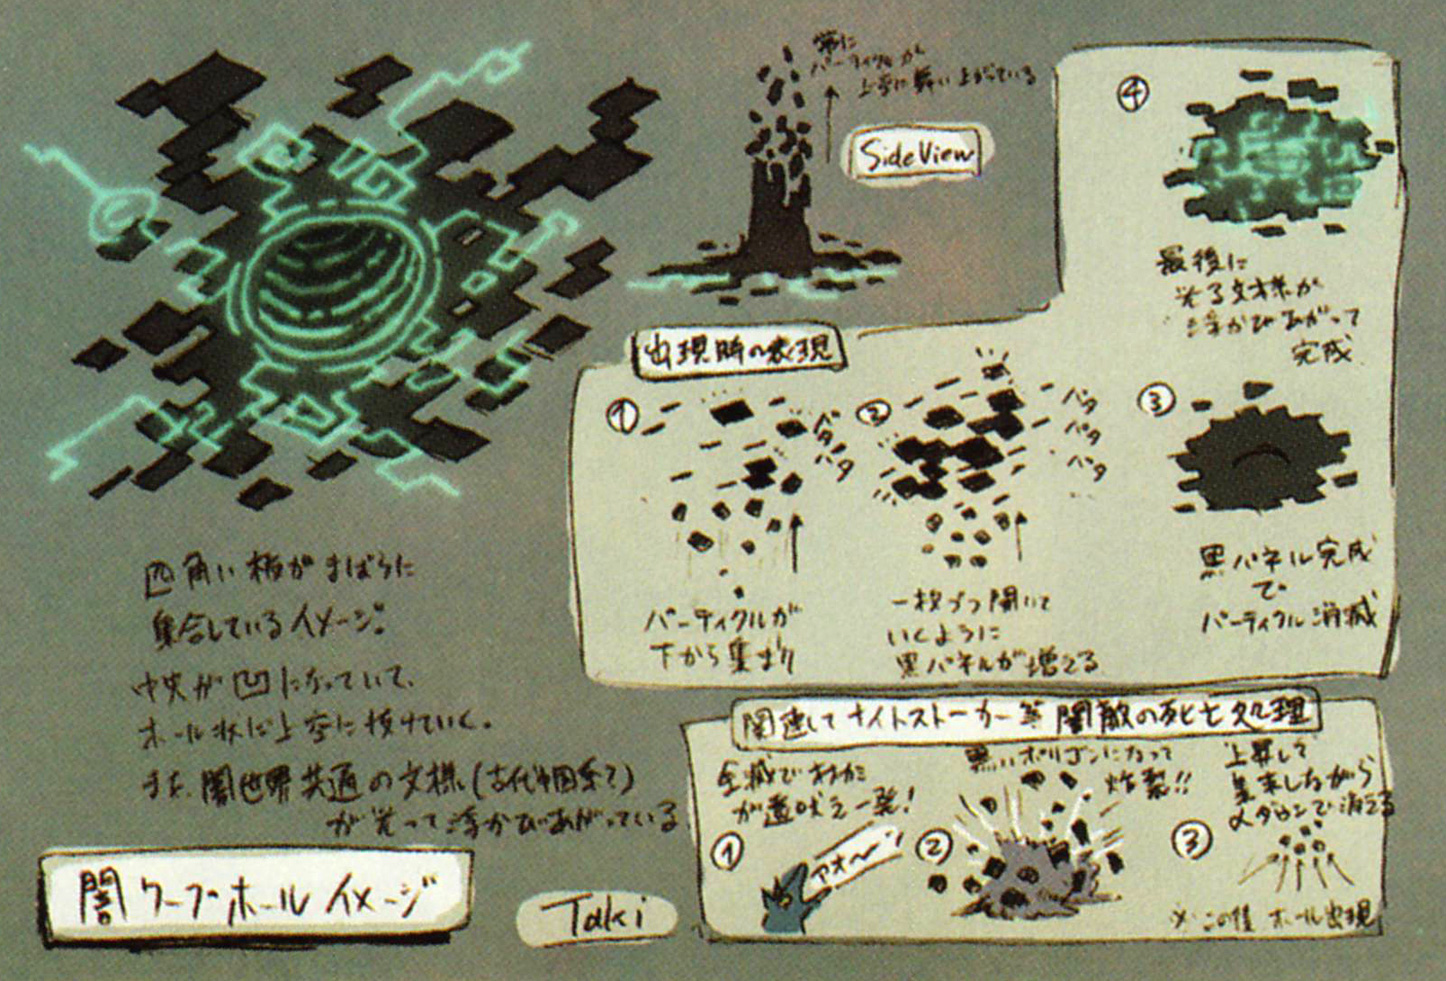 常に
パーティクルが
上空に舞い上がっている
SideView
四角い板がまばらに
集合しているイメージ。
中央が凹になっていて、
ホール状に上空に抜けていく。
また、闇世界共通の文様(古代中国系?)
が光って浮かびあがっている
闇ワープホールイメージ
Taki
出現時の表現
①
バタ
バタ
パーティクルが
下から集まり
②
バタ
バタ
バタ
一枚づつ開いて
いくように
黒パネルが増える
③
黒パネル完成
で
パーティクル消滅
④
最後に
光る文様が
浮かびあがって
完成
関連してナイトストーカー等 闇敵の死亡処理
全滅で
が遠吠え一発!
①
アオ〜ッ
黒いポリゴンになって
炸裂!!
②
上昇して
集束しながら
αダウンで消える
③
※この後 ホール出現